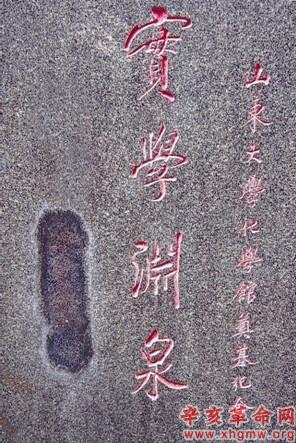 山東大學化學館奠基紀念
實學淵泉
辛亥革命网
www.xhgmw.org